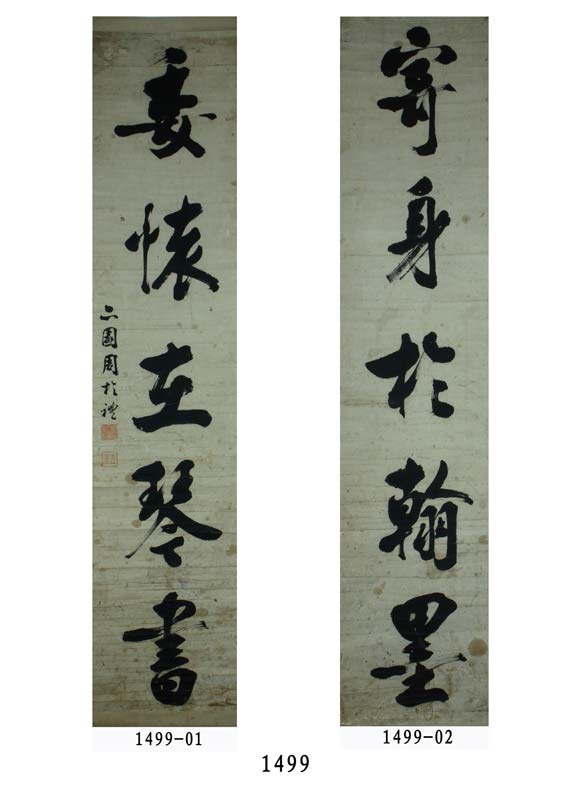 寄身於翰墨
委懷在琴書
亦園周於禮
1499-01
1499-02
1499